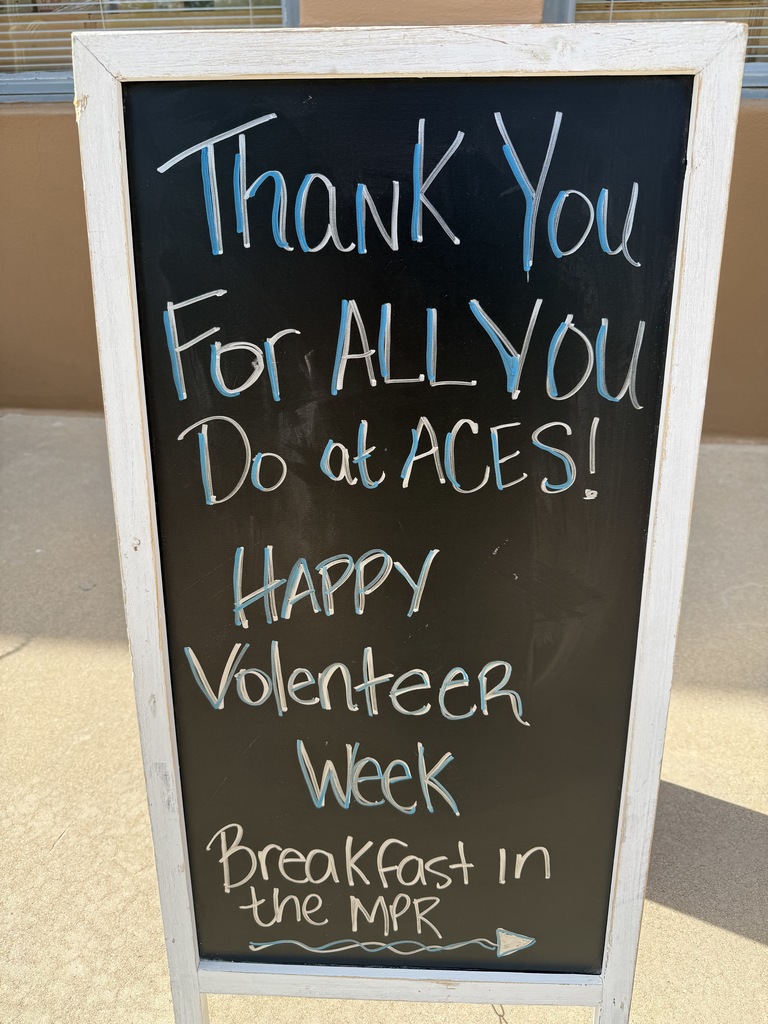 Thank You
For ALL YOU
Do at ACES!
HAPPY
VolenteeR
Week
Breakfast in
the MPR